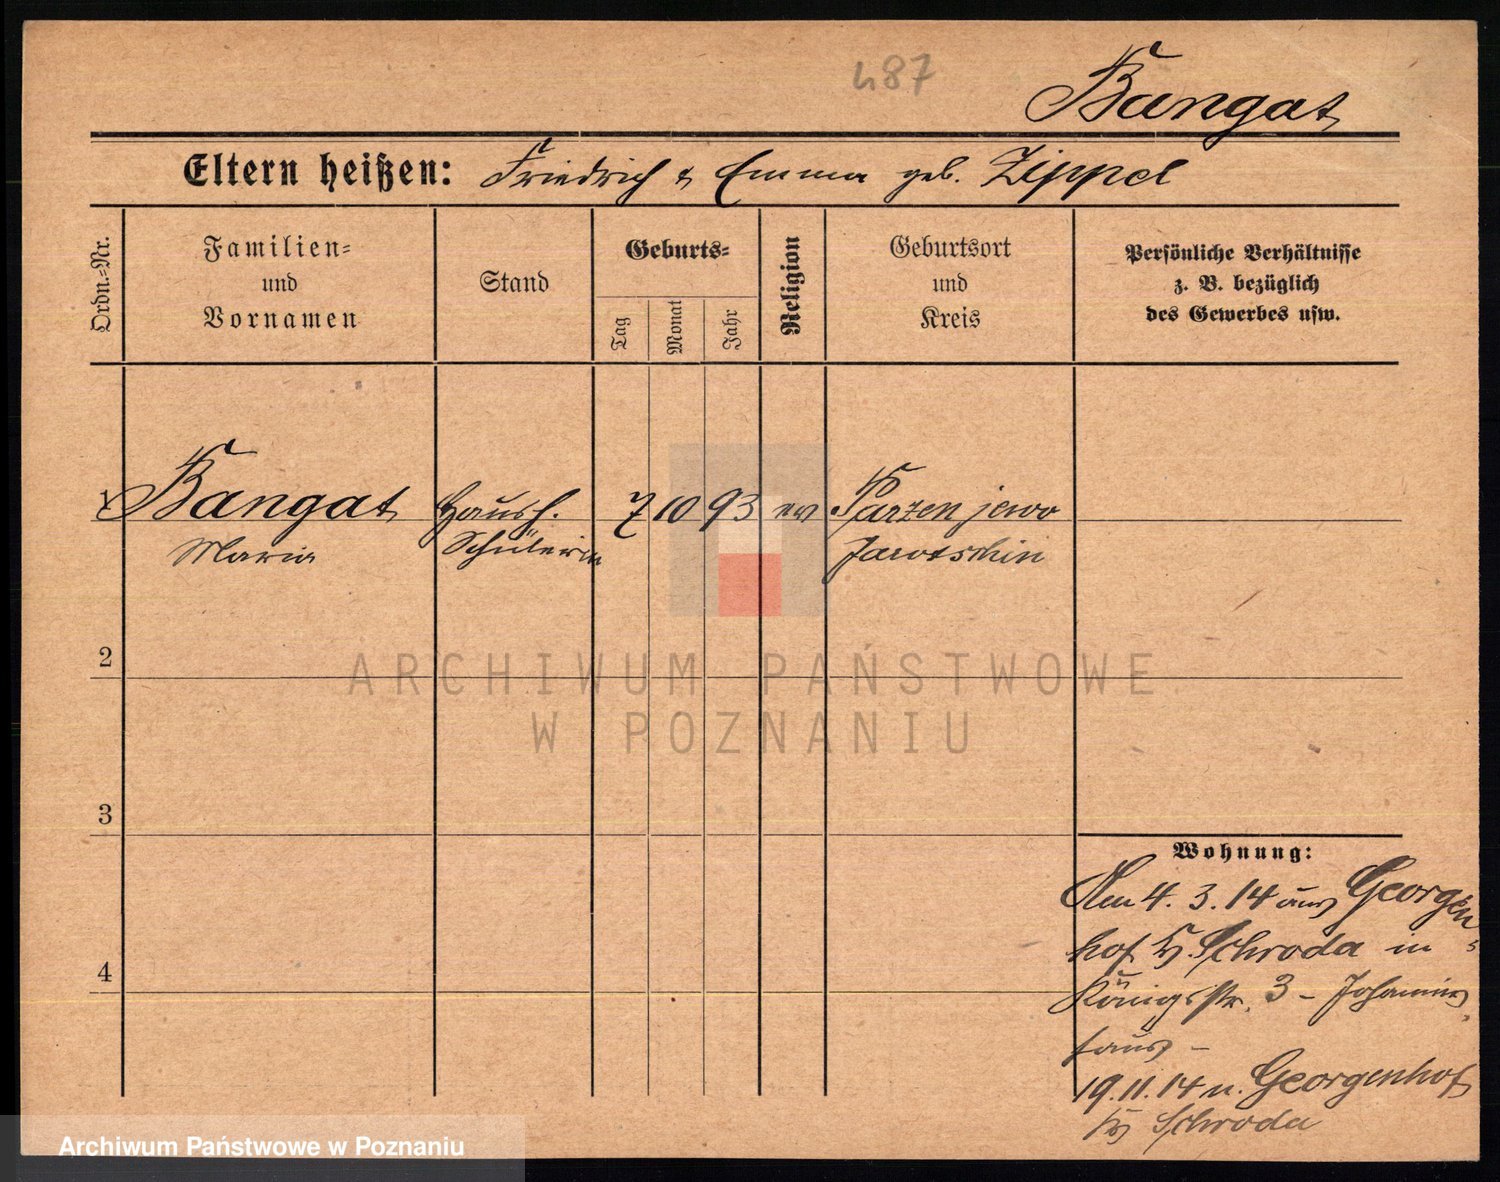 487
Bangat
Eltern heißen: Friedrich & Emma geb. Zippel
Ordn.-Nr.
Familien-
und
Vornamen
Stand
Geburts-
Tag
Monat
Jahr
Religion
Geburtsort
und
Kreis
Persönliche Verhältnisse
z. B. bezüglich
des Gewerbes usw.
1 Bangat Haush. 7 10 93 ev Parzenjewo
Maria Schülerin Jarotschin
2
3
4
Wohnung:
Am 4. 3. 14 aus Georgen-
hof Kr. Schroda in
Königstr. 3 - Johannis
haus -
19.11.14 n. Georgenhof
Kr Schroda
ARCHIWUM PAŃSTWOWE
W POZNANIU
Archiwum Państwowe w Poznaniu